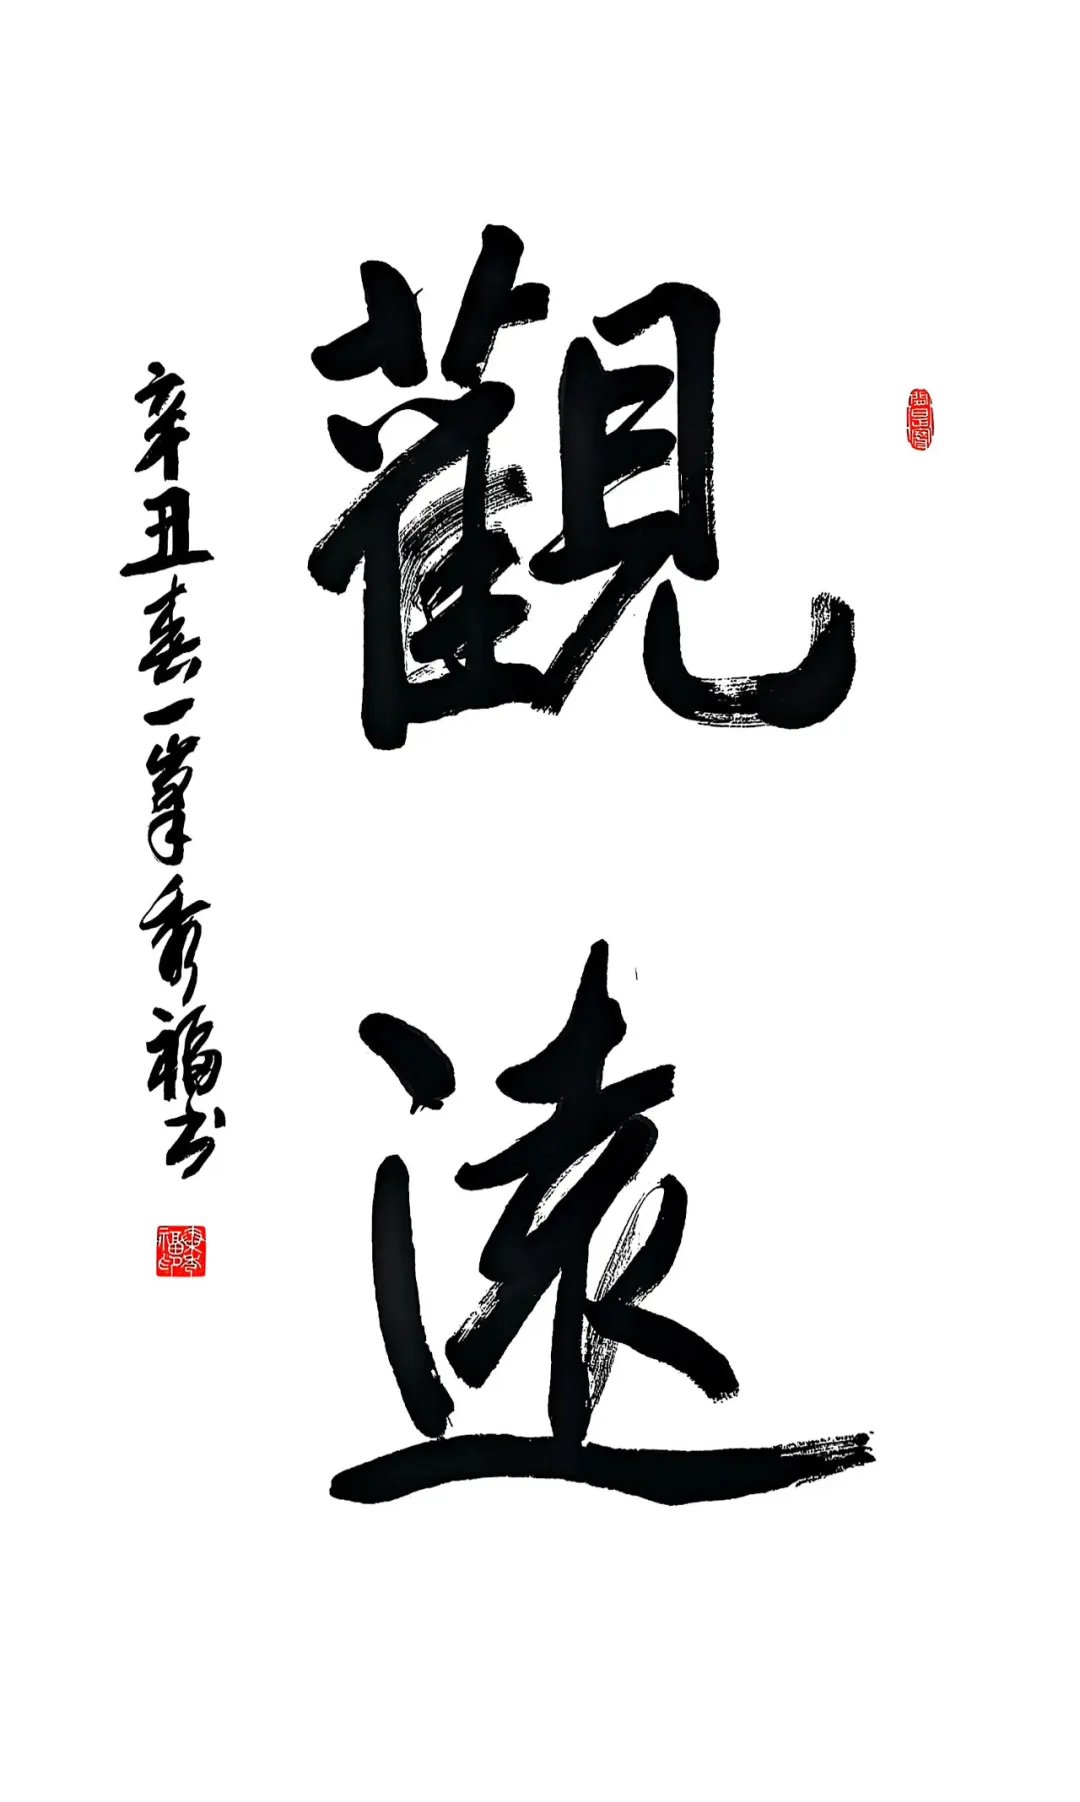 觀遠
辛丑春一峯秀福书